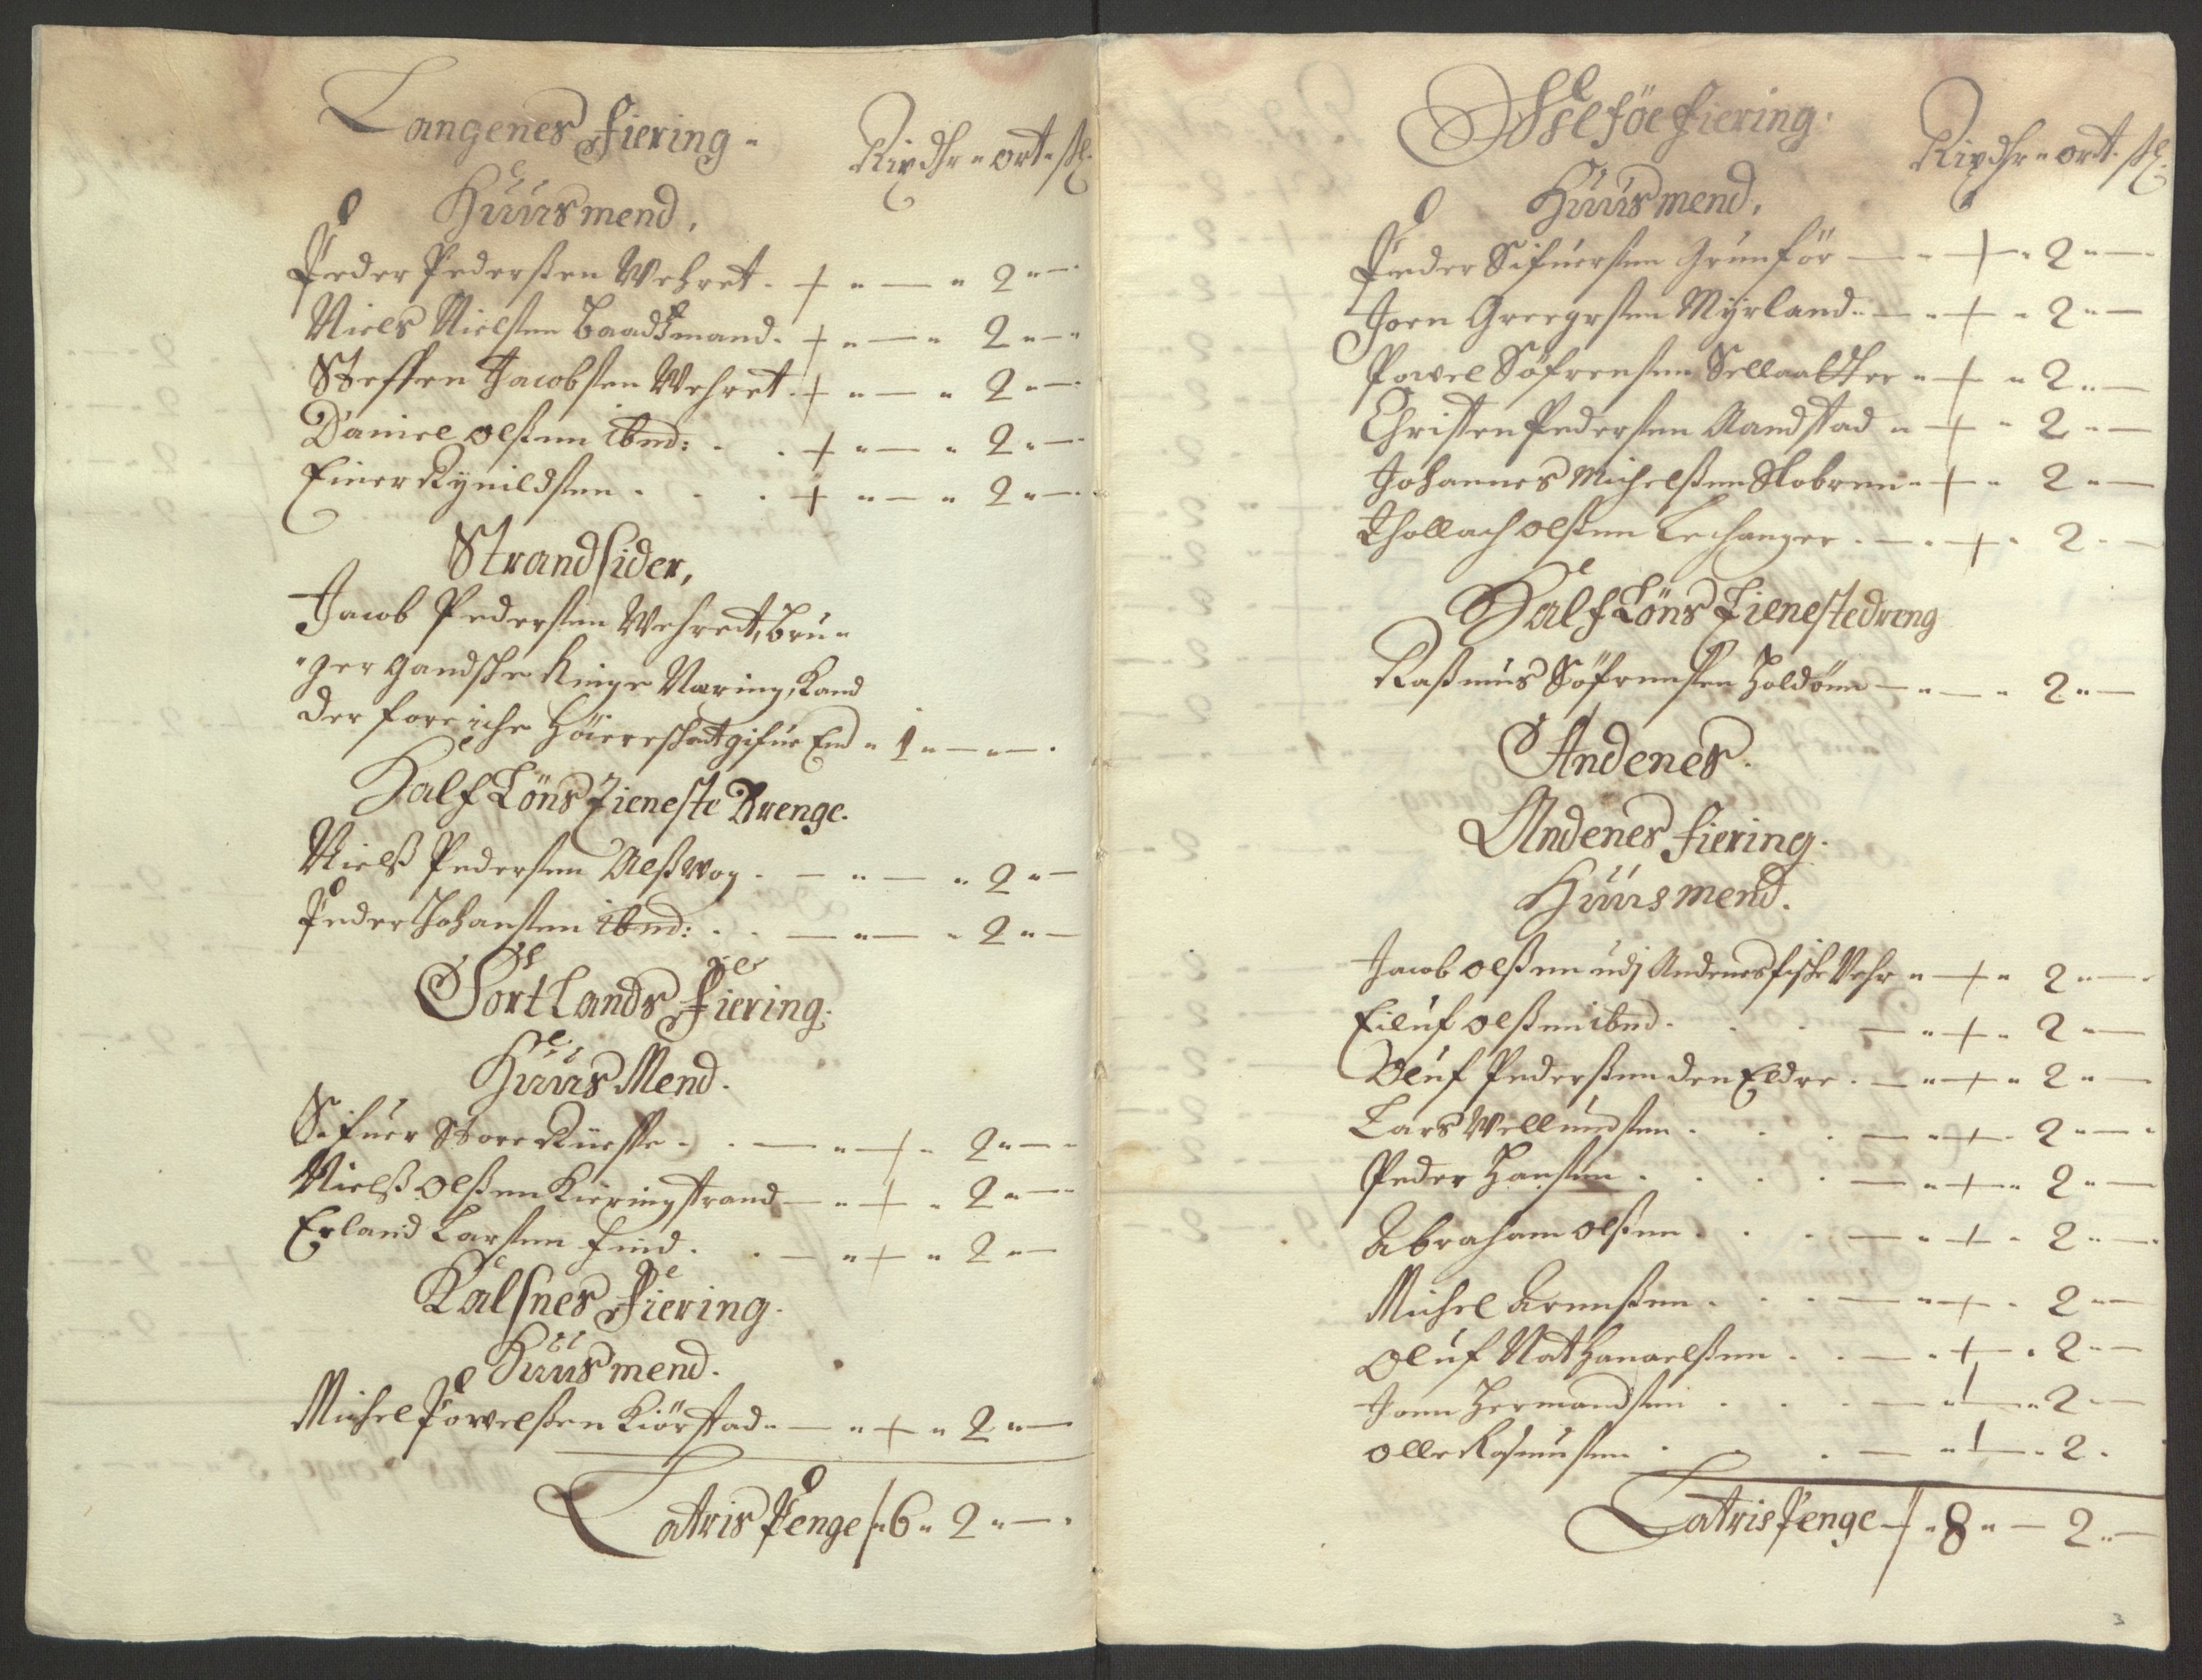 Langenes fiering -
Rixdlr - ort - sk:
Huusmend,
Peder Pederßen Wehret. + - — - 2 - —
Niels Nielsen Baadsmand. + - — - 2 - —
Steffen Jacobsen Wehret. + - — - 2 - —
Daniel olßen ibnd: . . + - — - 2 - —
Einer Rynildsen . . . + - — - 2 - —
Strandsider,
Jacob Pedersen Wehret, bru-
-ger gandske Ringe Næring, kand
der fore iche höiere skatt gifue End - 1 - — - — .
Half Löns Tieneste Drenge.
Nielß Pedersen Alßwog . — - — - 2 - —
Peder Johansen ibnd: . . — - — - 2 - —
Sortlands fiering;
Huus Mend.
Sifuer Store . . — - + - 2 - —
Nielß olßen Kieringstrand — - + - 2 - —
Erland Larsen find . . — - + - 2 - —
Kalsnes fiering.
Huusmend.
Michel Powelßen Kiörstad - — - + - 2 - —
Latris Penge / - 6 - 2 - — .
fiering.
Rixdlr - ort. sk:
Huusmend,
Peder Sifuersen Grunför — - + - 2 - —
Joen Greegersen Myrland - — - + - 2 - —
Powel Söfrensen - + - 2 - —
Christen Pedersen Randstad - + - 2 - —
Johannes Michelßen - + - 2 - —
Thollach olßen Lechanger . — . + . 2 - —
Half Löns Tienestedreng
Raßmus Söfrensen Holdöen — - — - 2 - —
Andenes.
Andenes fiering.
Huusmend.
Jacob olßen udj Andenes fiske Wehr - + - 2 - —
Eiluf olßen ibnd . . . — - + - 2 - —
Oluf Pederßen den Eldre . — - + - 2 - —
Lars Wellumsen . . . — - + - 2 - —
Peder Hansen . . . . — - + - 2 - —
Abraham olßen . . . — - + - 2 - —
Michel Arenßen . . . — - + - 2 - —
Oluf Nathanaelßen . . — - + . 2 - —
Joen Hermandsen . . . — - + - 2 - —
olle Rasmusen . . . — - + - 2 .
Latris Penge - / - 8 - — 2 - —
3